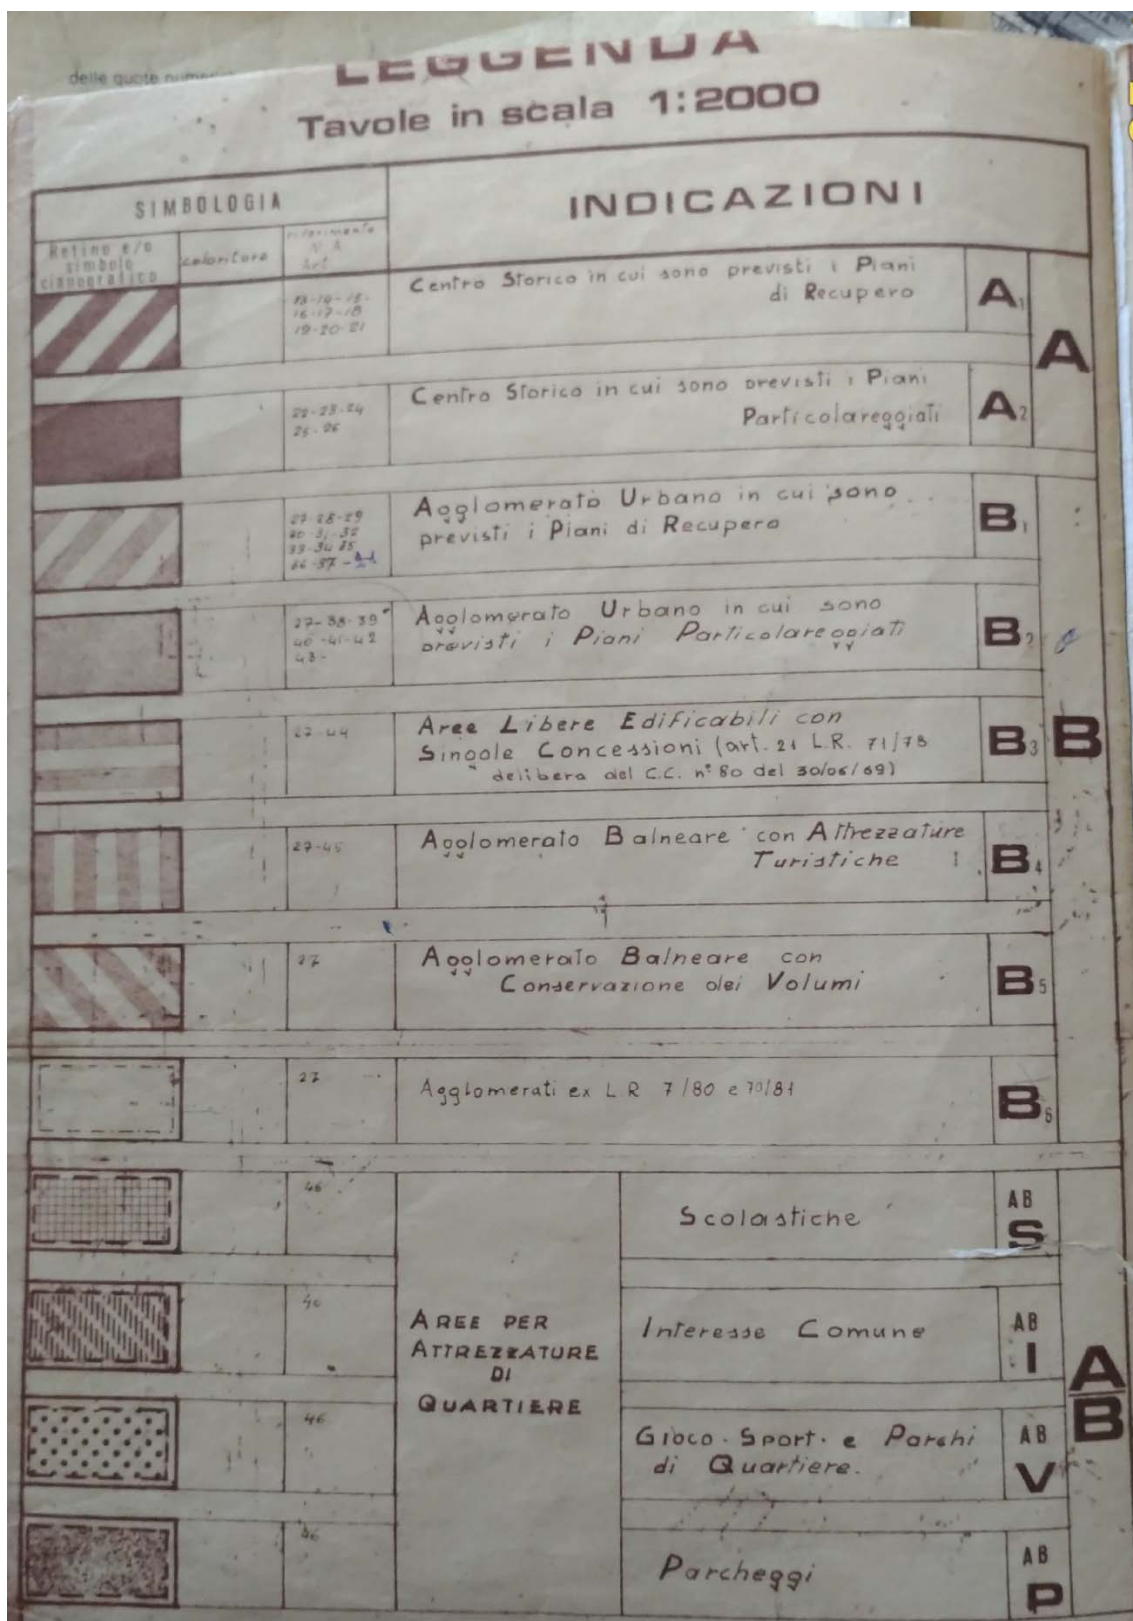 delle quote
LEGGENDA
Tavole in scala 1:2000
SIMBOLOGIA
INDICAZIONI
Retino e/o
simbolo
cianografico
coloritura
riferimento
N.A
Art.
13-14-15-
16-17-18
19-20-21
Centro Storico in cui sono previsti i Piani
di Recupero
A1
A
22-23-24
25-26
Centro Storico in cui sono previsti i Piani
Particolareggiati
A2
27-28-29
30-31-32
33-34-35
36-37-
Agglomerato Urbano in cui sono
previsti i Piani di Recupero
B1
27-38-39
40-41-42
43-
Agglomerato Urbano in cui sono
previsti i Piani Particolareggiati
B2
27-44
Aree Libere Edificabili con
Singole Concessioni (art. 21 L.R. 71/78
delibera del C.C. n° 80 del 30/06/89)
B3
B
27-45
Agglomerato Balneare con Attrezzature
Turistiche
B4
27
Agglomerato Balneare con
Conservazione dei Volumi
B5
27
Agglomerati ex L.R 7/80 e 70/81
B6
46
AREE PER
ATTREZZATURE
DI
QUARTIERE
Scolastiche
AB
S
Interesse Comune
AB
I
A
B
46
Gioco-Sport. e Parchi
di Quartiere.
AB
V
46
Parcheggi
AB
P